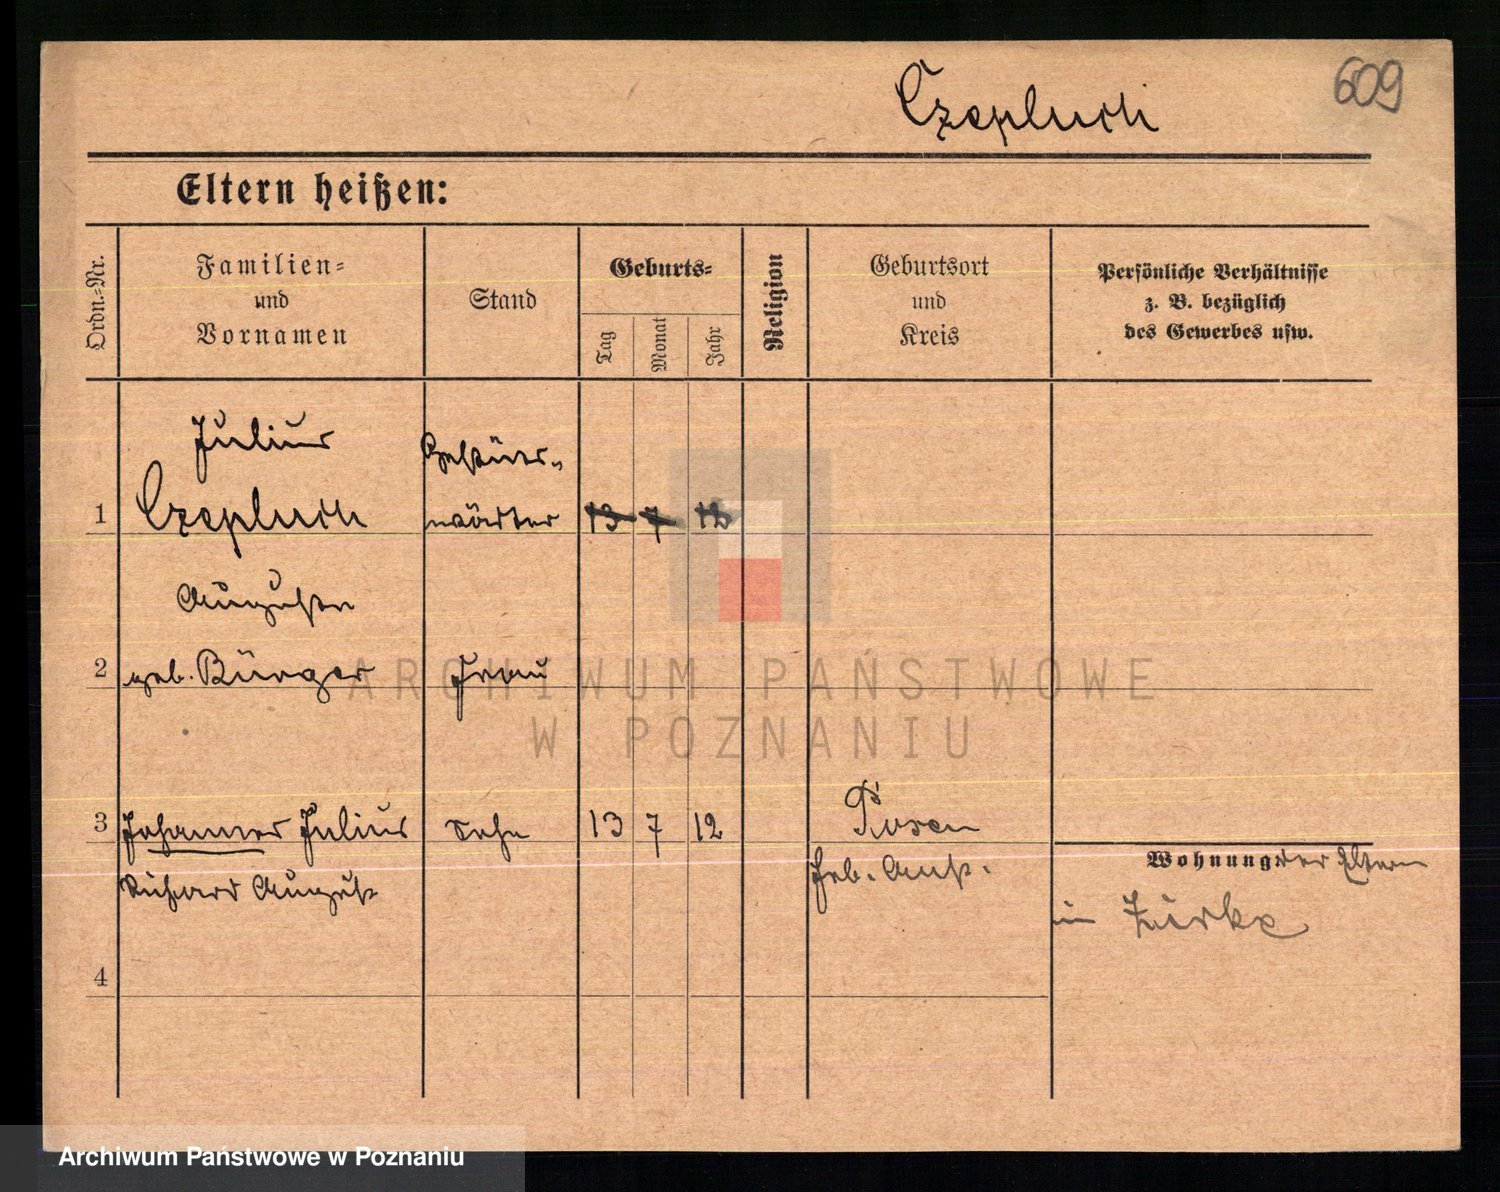 609
Czepluch
Eltern heißen:
Ordn.-Nr.
Familien-
und
Vornamen
Stand
Geburts-
Tag
Monat
Jahr
Religion
Geburtsort
und
Kreis
Persönliche Verhältnisse
z. B. bezüglich
des Gewerbes usw.
Julius
Gestüts-
1 Czepluch wärter 13 7 12
Auguste
2 geb. Bürger Frau
3 Johannes Julius Sohn 13 7 12 Posen
Richard August Geb. Anst.
Wohnung der Eltern
in Zirke
4
ARCHIWUM PAŃSTWOWE
W POZNANIU
Archiwum Państwowe w Poznaniu